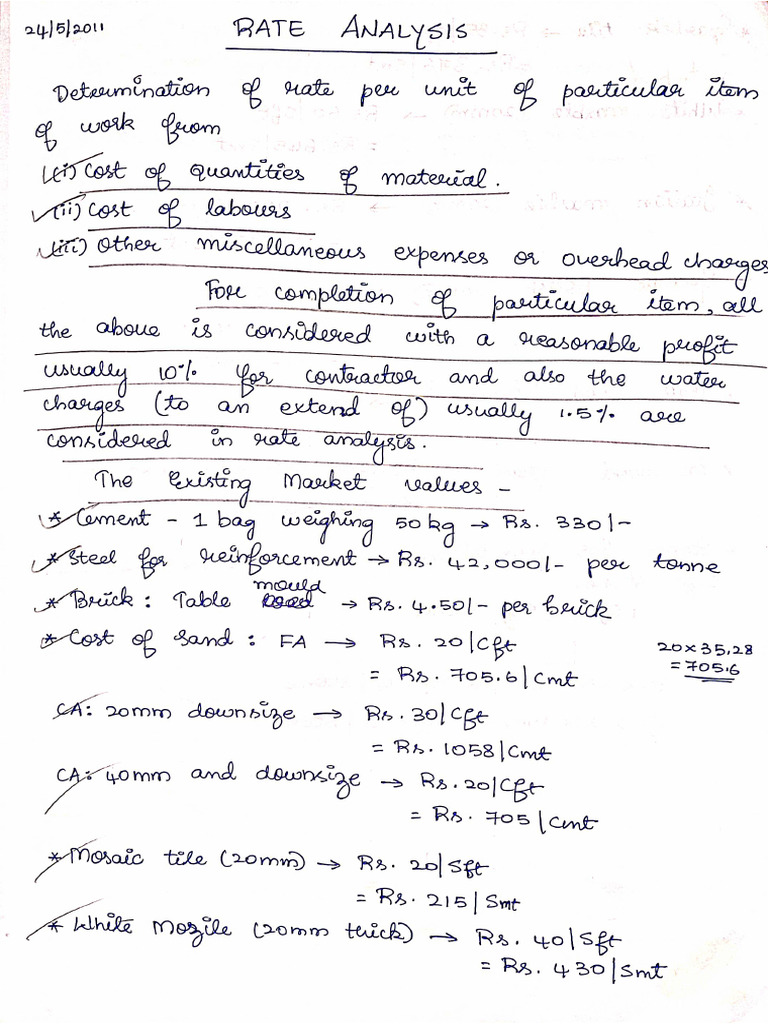 24/5/2011
RATE ANALYSIS
Determination of rate per unit of particular item
of work from
(i) Cost of quantities of material.
(ii) Cost of labours
(iii) Other miscellaneous expenses or overhead charges
For completion of particular item, all
the above is considered with a reasonable profit
usually 10% for contractor and also the water
charges (to an extend of) usually 1.5% are
considered in rate analysis.
The Existing Market values -
* Cement - 1 bag weighing 50 kg → Rs. 330/-
* Steel for reinforcement → Rs. 42,000/- per tonne
* Brick : Table mould → Rs. 4.50/- per brick
* Cost of sand : FA → Rs. 20/Cft
20 x 35.28
= Rs. 705.6/Cmt
= 705.6
CA: 20mm downsize → Rs. 30/Cft
= Rs. 1058/Cmt
CA: 40mm and downsize → Rs. 20/Cft
= Rs. 705/Cmt
* Mosaic tile (20mm) → Rs. 20/Sft
= Rs. 215/Smt
* White Mozile (20mm thick) → Rs. 40/Sft
= Rs. 430/Smt